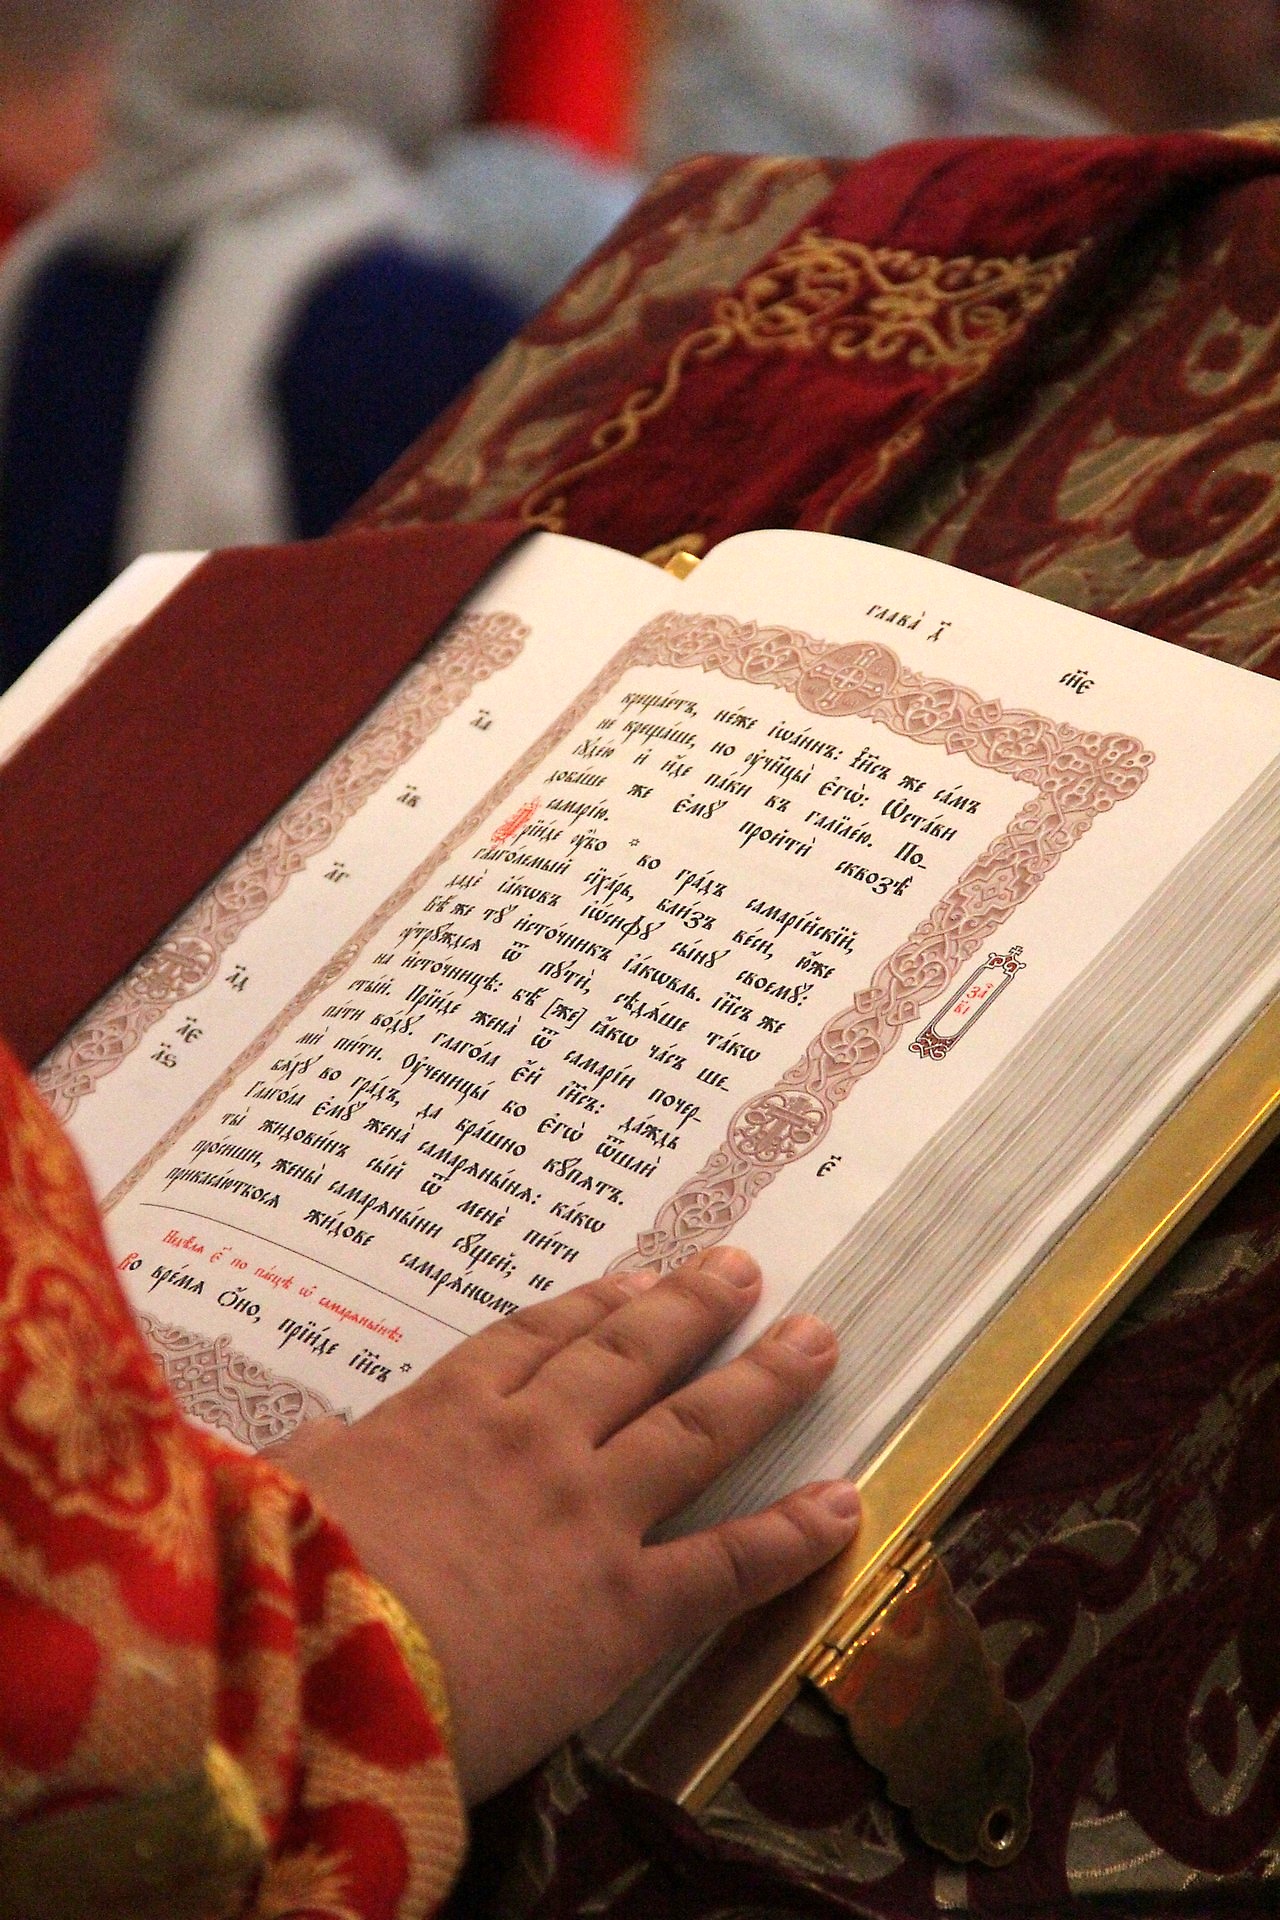 глава̀ д҃
сп҃е
л҃а
л҃в
л҃г
л҃д
л҃є
л҃ѕ
креща́етъ, не́же їѡа́ннъ: І҆и҃съ же са́мъ
не креща́ше, но ᲂу҆чн҃цы̀ є҆гѡ̀: Ѡ҆ста́ви
і҆ꙋде́ю и҆ и҆́де па́ки въ галїле́ю. По-
доба́ше же є҆мꙋ̀ проитѝ сквозѣ̀
самарі́ю.
Прїи́де ᲂу҆̀бо * во гра́дъ самарі́йскїй,
глаго́лемый сїха́рь, бли́зъ ве́си, ю҆́же
дадѐ і҆а́кѡвъ і҆ѡ́сифꙋ сы́нꙋ своемꙋ̀:
Бѣ́ же тꙋ̀ и҆сто́чникъ і҆а́кѡвль. і҆и҃съ же
ᲂу҆трꙋ́ждсѧ ѿ пꙋтѝ, сѣдѧ́ше та́кѡ
на и҆сто́чницѣ: бѣ̀ [же] ꙗ҆́кѡ ча́съ ше-
сты́й. Прїи́де жена̀ ѿ самарі́и почер-
па́ти во́дꙋ. глаго́ла є҆́й і҆и҃съ: да́ждь
мѝ пи́ти. Оу҆ченицы́ бо є҆гѡ̀ ѿшлѝ
бѧ́хꙋ во гра́дъ, да бра́шно кꙋ́пѧтъ.
Глаго́ла є҆мꙋ̀ жена̀ самарѧны́нѧ: ка́кѡ
ты̀ жидови́нъ сы́й ѿ менє̀ пи́ти
про́сиши, жены̀ самарѧны́ни сꙋ́щей; не
прикаса́ютбосѧ жи́дове самарѧ́нѡмъ
За҄ч
в҃і
є҃і
Недѣ́лѧ є҃ по па́сцѣ ѡ҆ самарѧны́нѣ:
Во вре́мѧ ѻ҆́но, прїи́де і҆и҃съ *